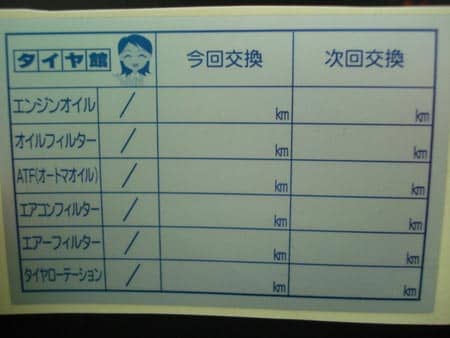 タイヤ館 今回交換 次回交換
エンジンオイル / km km
オイルフィルター / km km
ATF(オートマオイル) / km km
エアコンフィルター / km km
エアーフィルター / km km
タイヤローテーション / km km